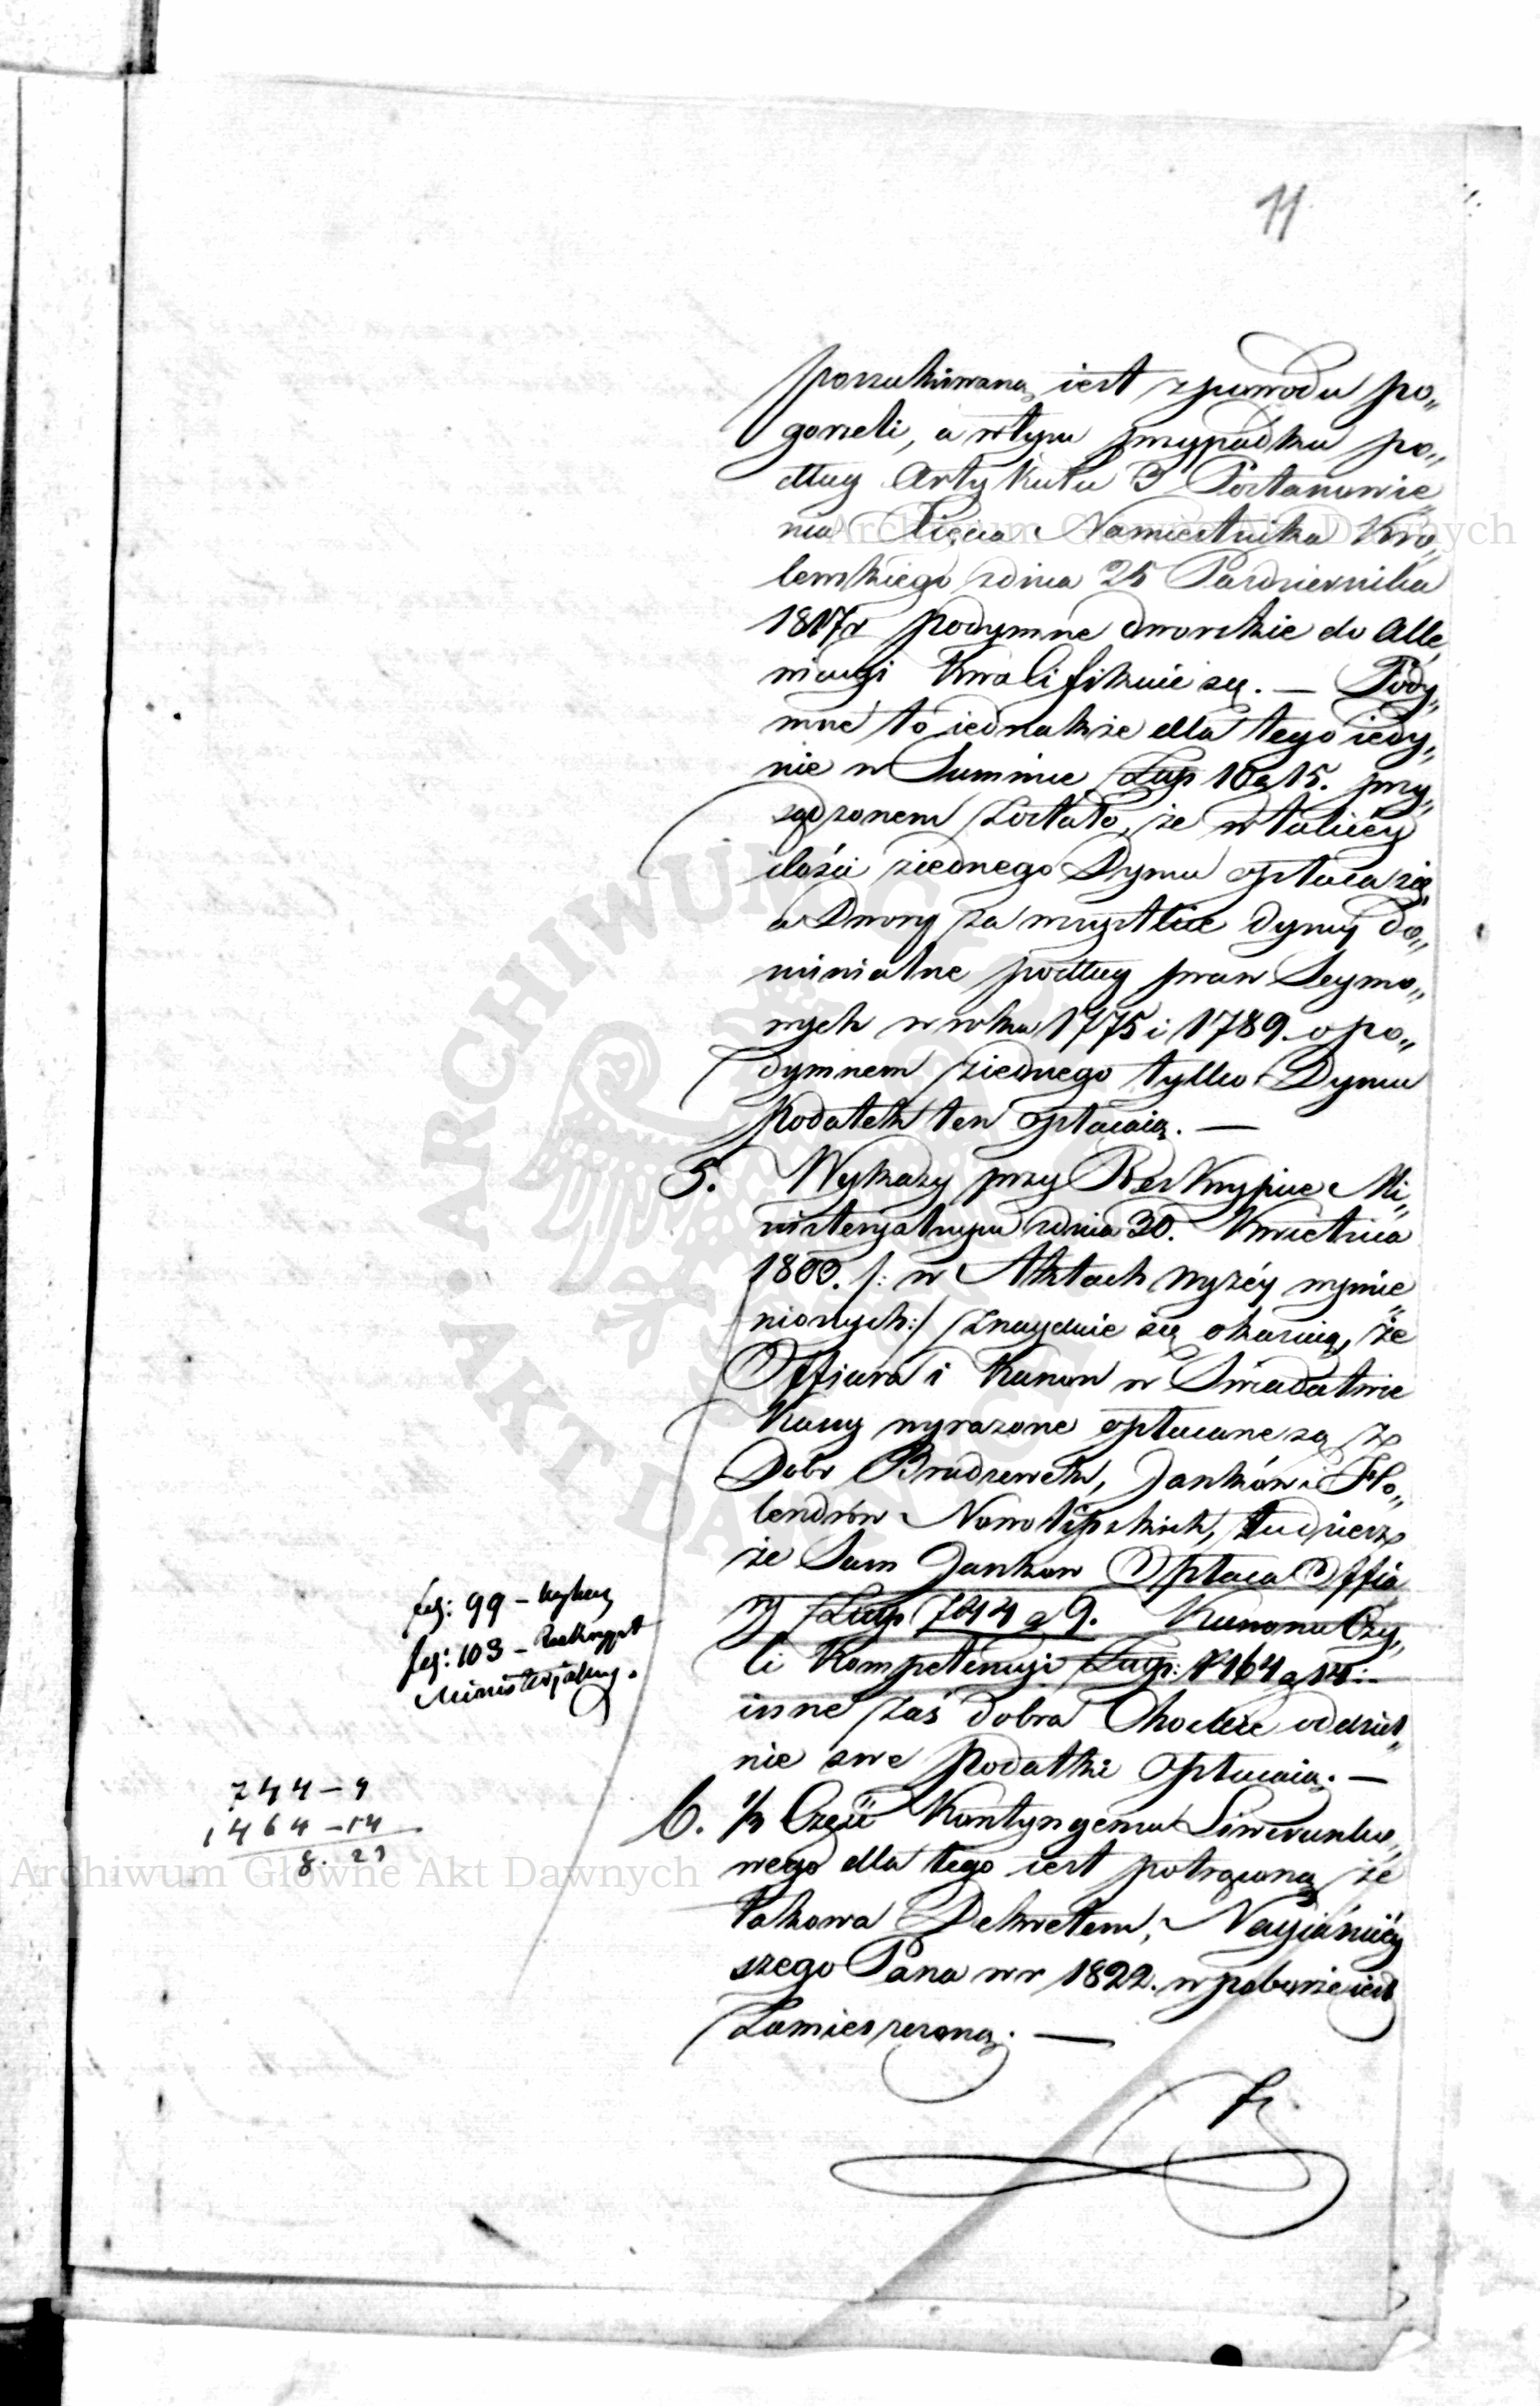 11
poszukiwaną iest z powodu po„
gorzeli, a w tym przypadku po„
dług Artykułu 3 Postanowie„
nia Xięcia Namiestnika Kró„
lewskiego z dnia 25 Października
1817r podymne dworskie do Alle„
wiacyi kwalifikuie się. — Pody„
mne to iednakże dla tego iedy„
nie w Summie Złłp 10 g 15. przy„
sądzonem zostało, że w takiéy
ilości z iednego Dymu opłaca się
a Dwory za wszystkie dymy do„
minialne podług praw Seymo„
wych w roku 1775 i 1789. o po„
dymnem z iednego tylko Dymu
Podatek ten opłacaią. —
5. Wykazy przy Reskrypcie Mi„
nisteryalnym z dnia 30. Kwietnia
18 . /: w Aktach wyżéy wymie„
nionych:/ znayduie się okazuią, że
Offiara i Kanon w Świadectwie
Kassy wyrażone opłacane są z
Dobr Brudzewek, Janków i Ho„
lendrów Nowolipskich, tudzież
że Sam Janków Opłaca Offia„
ry Złłp 744 g 9. Kanonu Czy„
li Kompetencyi Złłp: 1464 g 14:
inne zaś dobra Chockie oddziel„
nie swe podatki opłacaią. —
fol: 99 – wykazy
fol: 103 – Reskrypt
Ministeryalny.
744 – 9
1464 – 14
8. 23
6. Części Kontyngensu Liwerunko„
wego dla tego iest potrąconą, że
takowa Dekretem, Nayiaśniéy„
szego Pana w r 1822. w poborze iest
Zamieszczoną. —
Archiwum Główne Akt Dawnych
Archiwum Główne Akt Dawnych
ARCHIWUM GŁÓWNE AKT DAWNYCH